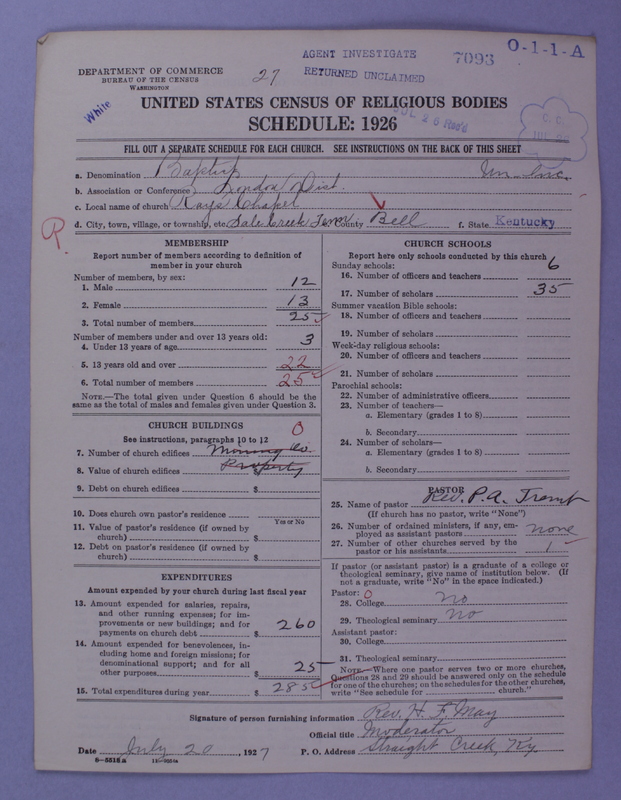 AGENT INVESTIGATE
7093
O-1-1-A
DEPARTMENT OF COMMERCE
BUREAU OF THE CENSUS
WASHINGTON
27
RETURNED UNCLAIMED
White
UNITED STATES CENSUS OF RELIGIOUS BODIES
JUL 26 Rec'd
SCHEDULE: 1926
FILL OUT A SEPARATE SCHEDULE FOR EACH CHURCH. SEE INSTRUCTIONS ON THE BACK OF THIS SHEET
a. Denomination Baptist
b. Association or Conference London Dist.
c. Local name of church Rays Chapel
d. City, town, village, or township, etc. County Bell f. State Kentucky
R.
MEMBERSHIP
Report number of members according to definition of
member in your church
Number of members, by sex:
1. Male 12
2. Female 13
3. Total number of members 25
Number of members under and over 13 years old:
4. Under 13 years of age 3
5. 13 years old and over 22
6. Total number of members 25
NOTE.—The total given under Question 6 should be the
same as the total of males and females given under Question 3.
CHURCH BUILDINGS 0
See instructions, paragraphs 10 to 12
7. Number of church edifices Mining Co.
8. Value of church edifices $ Property
9. Debt on church edifices $
10. Does church own pastor's residence
Yes or No
11. Value of pastor's residence (if owned by
church) $
12. Debt on pastor's residence (if owned by
church) $
EXPENDITURES
Amount expended by your church during last fiscal year
13. Amount expended for salaries, repairs,
and other running expenses; for im-
provements or new buildings; and for
payments on church debt $ 260
14. Amount expended for benevolences, in-
cluding home and foreign missions; for
denominational support; and for all
other purposes $ 25
15. Total expenditures during year $ 285
CHURCH SCHOOLS
Report here only schools conducted by this church
Sunday schools:
16. Number of officers and teachers 6
17. Number of scholars 35
Summer vacation Bible schools:
18. Number of officers and teachers
19. Number of scholars
Week-day religious schools:
20. Number of officers and teachers
21. Number of scholars
Parochial schools:
22. Number of administrative officers
23. Number of teachers—
a. Elementary (grades 1 to 8)
b. Secondary
24. Number of scholars—
a. Elementary (grades 1 to 8)
b. Secondary
PASTOR
25. Name of pastor Rev. P. A.
(If church has no pastor, write "None")
26. Number of ordained ministers, if any, em-
ployed as assistant pastors none
27. Number of other churches served by the
pastor or his assistants 1
If pastor (or assistant pastor) is a graduate of a college or
theological seminary, give name of institution below. (If
not a graduate, write "No" in the space indicated.)
Pastor: 0
28. College no
29. Theological seminary no
Assistant pastor:
30. College
31. Theological seminary
NOTE.—Where one pastor serves two or more churches,
Questions 28 and 29 should be answered only on the schedule
for one of the churches; on the schedules for the other churches,
write "See schedule for church."
Signature of person furnishing information Rev. H. F. May
Official title Moderator
Date July 20, 1927 P. O. Address Straight Creek, Ky.
8—5515a